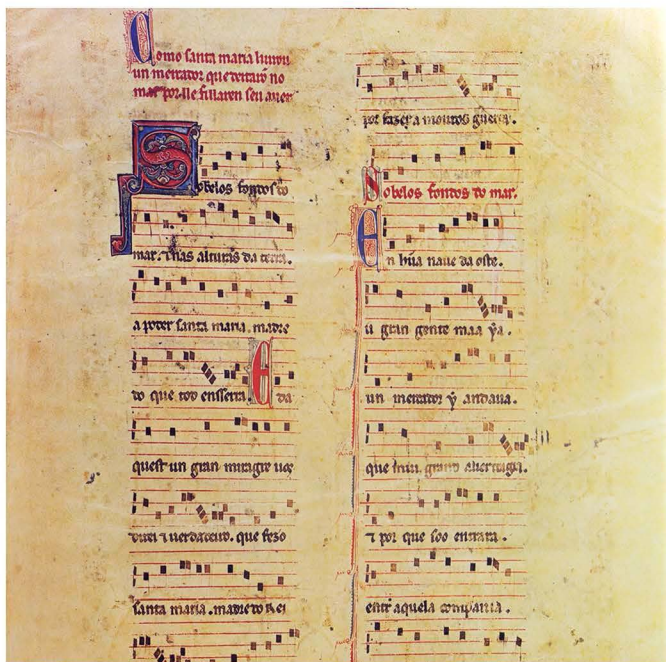 Como santa maria liurou
un mercador que tentaro no
mar por lle fillaren seu auer
Sobelos fondos do
mar. ⁊ nas alturas da terra.
a poder santa maria. madre
do que tod enserra. E da
quest un gran miragre uos
direi ⁊ uerdadeiro. que fezo
santa maria. madre do Rei
por fazer a moutos guerra.
Sobelos fondos do mar.
En hũa naue da oste.
u gran gente maa ỹa.
un mercador ẏ andaua.
que gran auer
⁊ por que soo entrara.
entr aquela compania.